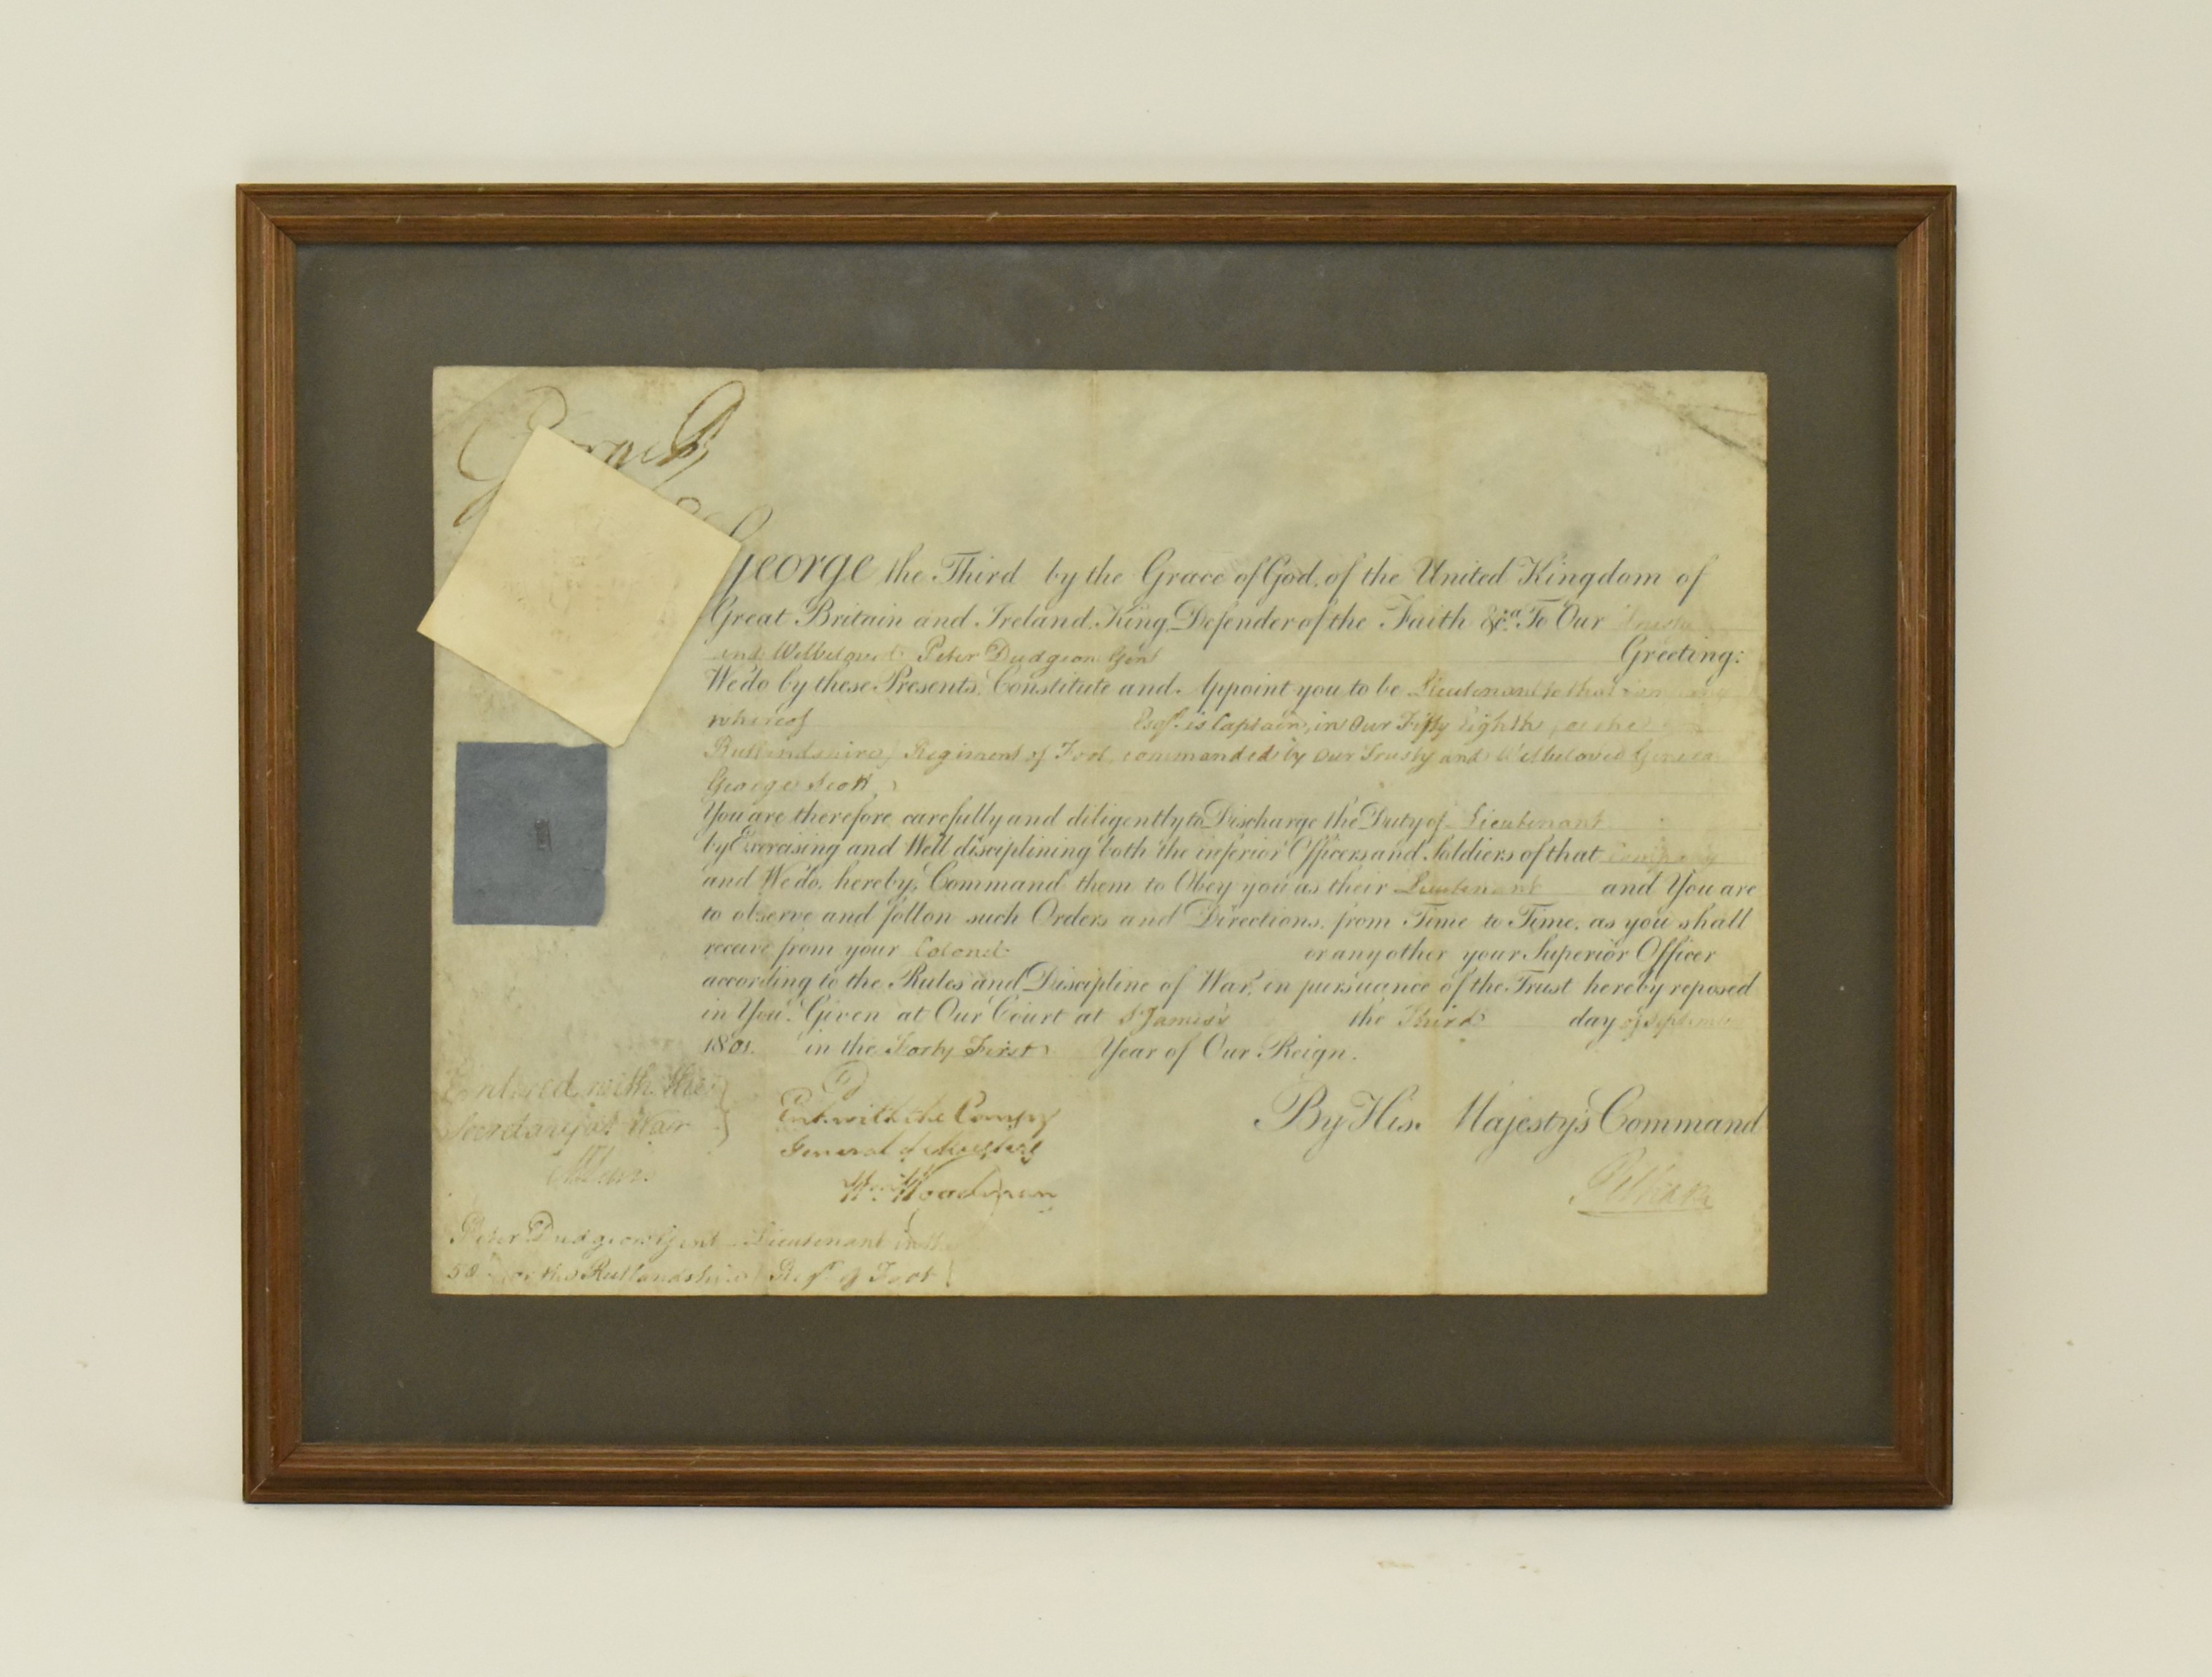 George R
George the Third by the Grace of God, of the United Kingdom of
Great Britain and Ireland, King, Defender of the Faith &c.a To Our Trusty
and Welbeloved Peter Dudgeon Gent Greeting:
We do by these Presents, Constitute and Appoint you to be Lieutenant to that
whereof Esqr. is Captain, in Our Fifty Eighth (or the
Rutlandshire) Regiment of Foot, commanded by Our Trusty and Welbeloved General
George Scott,
You are therefore carefully and diligently to Discharge the Duty of Lieutenant
by Exercising and Well disciplining both the inferior Officers and Soldiers of that Company
and We do, hereby, Command them to Obey you as their Lieutenant and You are
to observe and follow such Orders and Directions, from Time to Time, as you shall
receive from your Colonel or any other your Superior Officer
according to the Rules and Discipline of War, in pursuance of the Trust hereby reposed
in You. Given at Our Court at St James's the Third day of September
1801. in the Forty First Year of Our Reign.
By His Majesty's Command
Pelham
Entered with the
Secretary at War
Ent. with the Comy
General of Musters
Wm Woodman
Peter Dudgeon Gent Lieutenant in the
58th (or the Rutlandshire) Regt of Foot